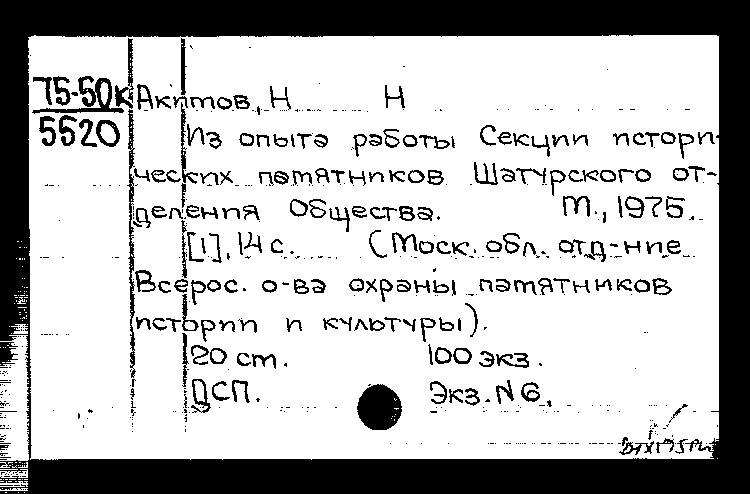 75-50к
5520
Акимов, Н Н
Из опыта работы Секции истори-
ческих памятников Шатурского от-
деления Общества. М., 1975.
[1], 14 с. (Моск. обл. отд-ние
Всерос. о-ва охраны памятников
истории и культуры).
20 ст. 100 экз.
ДСП. Экз. N 6.